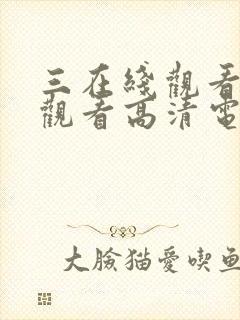 三在綫觀看
觀看高清電
大臉猫愛喫鱼